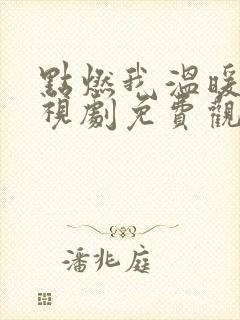 點燃我溫暖
視劇免費觀
潘兆庭